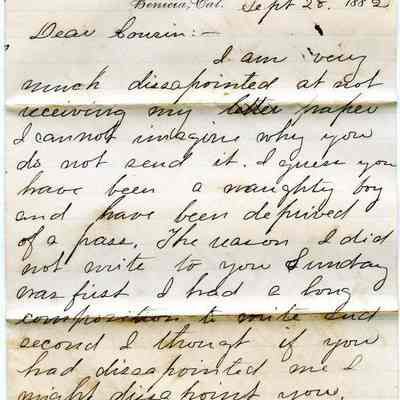 Benicia, Cal. Sept 28. 1882
Dear Cousin:-
I am very
much dissapointed at not
receiving my letter paper
I cannot imagine why you
do not send it. I guess you
have been a naughty boy
and have been deprived
of a pass. The reason I did
not write to you Sunday
was first I had a long
composition to write and
second I thought if you
had dissapointed me I
might dissapoint you.